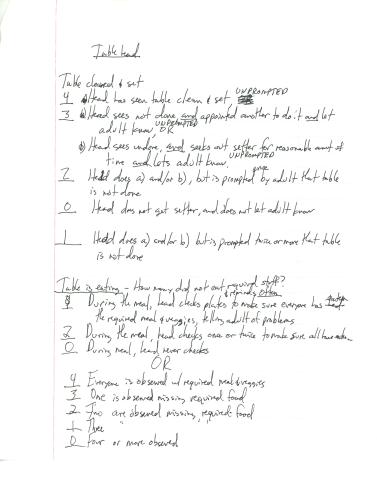 Table head
Table cleared & set
4 Head has seen table clean & set, UNPROMPTED
3 Head sees not done and appointed another to do it and let
adult know, UNPROMPTED OR
b) Head sees undone, and seeks out setter for reasonable amt of
time and lets adult know. UNPROMPTED
2 Head does a) and/or b), but is prompted once by adult that table
is not done
0 Head does not get setter, and does not let adult know
1 Head does a) and/or b) but is prompted twice or more that table
is not done
Table is eating - How many did not eat required stuff?
4 During the meal, head checks plates to make sure everyone has
the required meal & veggies, telling adult of problems
2 During the meal, head checks once or twice to make sure all have
0 During meal, head never checks
OR
4 Everyone is observed w/ required meal & veggies
3 One is observed missing required food
2 Two are observed missing required food
1 Three "
0 Four or more observed